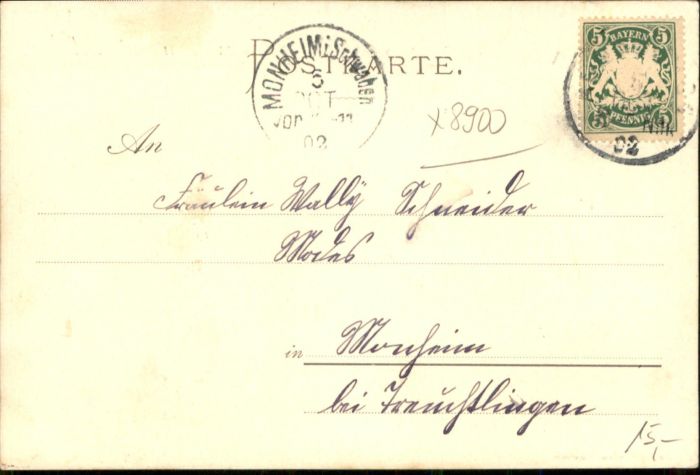 POSTKARTE.
MONHEIM i. Schwaben
3
OCT
VOR. -11
02
5 BAYERN 5
5 PFENNIG 5
Nm
02
x 8900
An
Fräulein Wally Schneider
Modes
in Monheim
bei Treuchtlingen
15,-